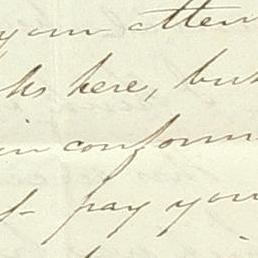 your atten
ks here, but
in conform
pay you